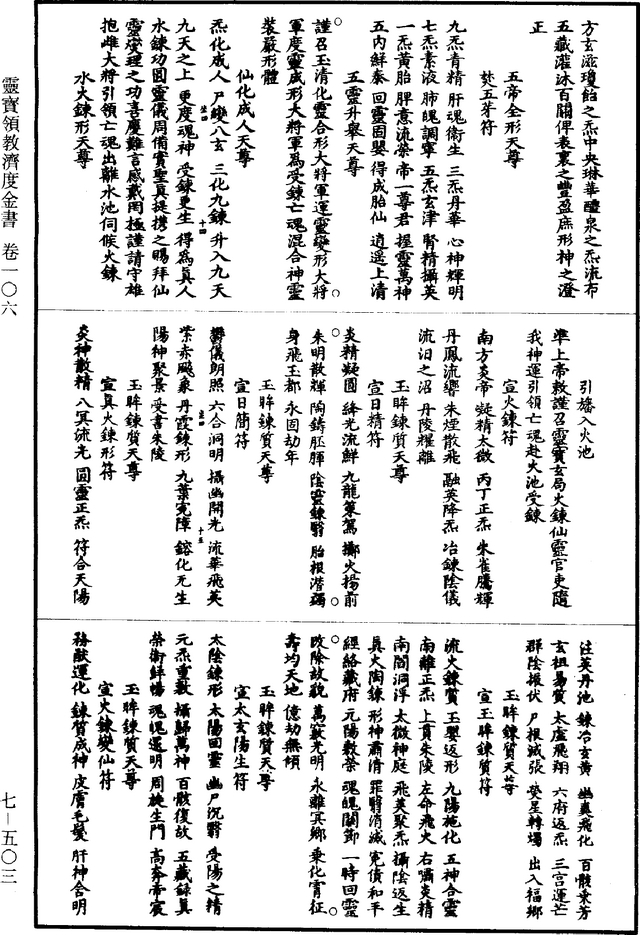 方玄滋瓊飴之炁中央琳華醴泉之炁流布
五藏灌沐百關俾表裏之豐盈庶形神之澄
正
五帝全形天尊
焚五芽符
九炁青精 肝魂衛生 三炁丹華 心神輝明
七炁素液 肺魄調寧 五炁玄津 腎精攝英
一炁黃胎 脾意流榮 帝一尊君 握靈萬神
五內鮮泰 回靈固嬰 得成胎仙 逍遥上清
五靈升舉天尊
謹召玉清化靈合形大將軍運靈變形大將
軍度靈成形大將軍為受鍊亡魂混合神靈
裝嚴形體
仙化成人天尊
炁化成人 尸變八玄 三化九鍊 升入九天
九天之上 更度魂神 受鍊更生 得為真人
水鍊功圓靈儀周備實聖真提攜之賜拜仙
靈變理之功喜慶難言感戴罔極謹請守雄
抱雌大將引領亡魂出離水池伺候火鍊
水火鍊形天尊
引旛入火池
準上帝敕謹召靈寶玄局火鍊仙靈官吏隨
我神運引領亡魂赴火池受鍊
宣火鍊符
南方炎帝 凝精太微 丙丁正炁 朱雀騰輝
丹鳳流響 朱煙散飛 融英降炁 冶鍊陰儀
流汨之沼 丹陵耀離
玉眸鍊質天尊
宣日精符
炎精凝圓 絳光流鮮 九龍策駕 擲火揚前
朱明散輝 陶鑄胚腪 陰靈鍊翳 胎根潛蠲
身飛玉都 永固劫年
玉眸鍊質天尊
宣日簡符
鬱儀朗照 六合洞明 攝幽開光 流華飛英
紫赤飈象 丹霞鍊形 九葉寃障 鎔化无生
陽神聚景 受書朱陵
玉眸鍊質天尊
宣真火鍊形符
炎神散精 八冥流光 圓靈正炁 符合天陽
注英丹池 鍊冶玄黃 幽爽飛化 百骸秉芳
玄祖易質 太虛飛翔 六府返炁 三宮運芒
群陰報伏 尸根滅張 孌星轉暘 出入福鄉
玉眸鍊質天尊
宣玉眸鍊質符
流火鍊質 玉嬰返形 九陽施化 五神合靈
南離正炁 上真朱陵 左命飛火 右嘯炎精
南閻洞浮 太微神庭 飛英聚炁 攝陰返生
真火陶鍊 形神肅清 罪翳消滅 寃債和平
經絡藏府 元陽敷榮 魂魄關節 一時回靈
改除故貌 萬竅光明 永離冥鄉 乘化霄征
壽均天地 億劫無傾
玉眸鍊質天尊
宣太玄陽生符
太陰鍊形 太陽回靈 幽尸沉翳 受陽之精
元炁重敷 攝歸萬神 百骸復故 五藏錬真
榮衛鮮暢 魂魄還明 周旋生門 高奔帝宸
玉眸鍊質天尊
宣火鍊變仙符
務猷運化 鍊質成神 皮膚毛髮 肝神含明
靈寶領教濟度金書 卷一〇六
七－五〇三